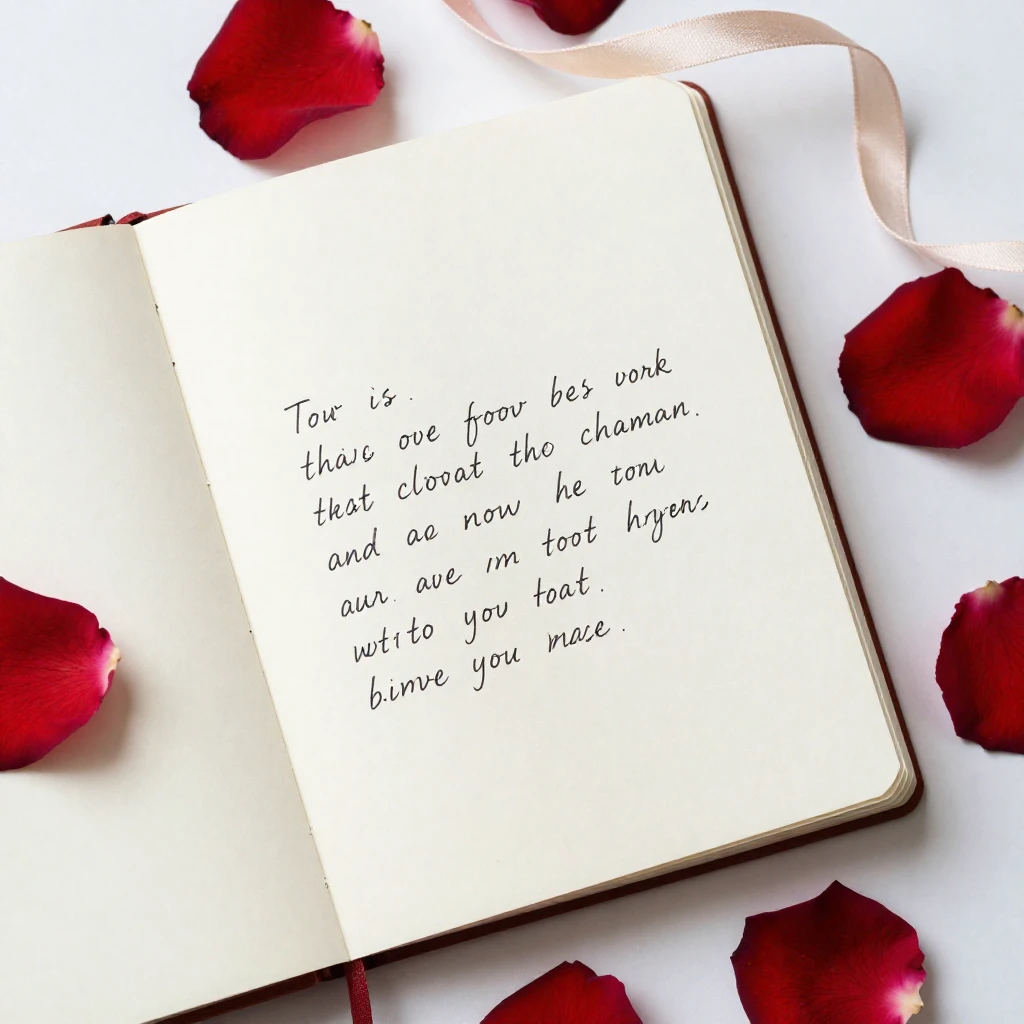 Tour is.
thais ove foov bes vork
that clooat tho chaman.
and ae now he tom
aur. ave im toot hryens,
wtito you toat.
b.inve you mase.